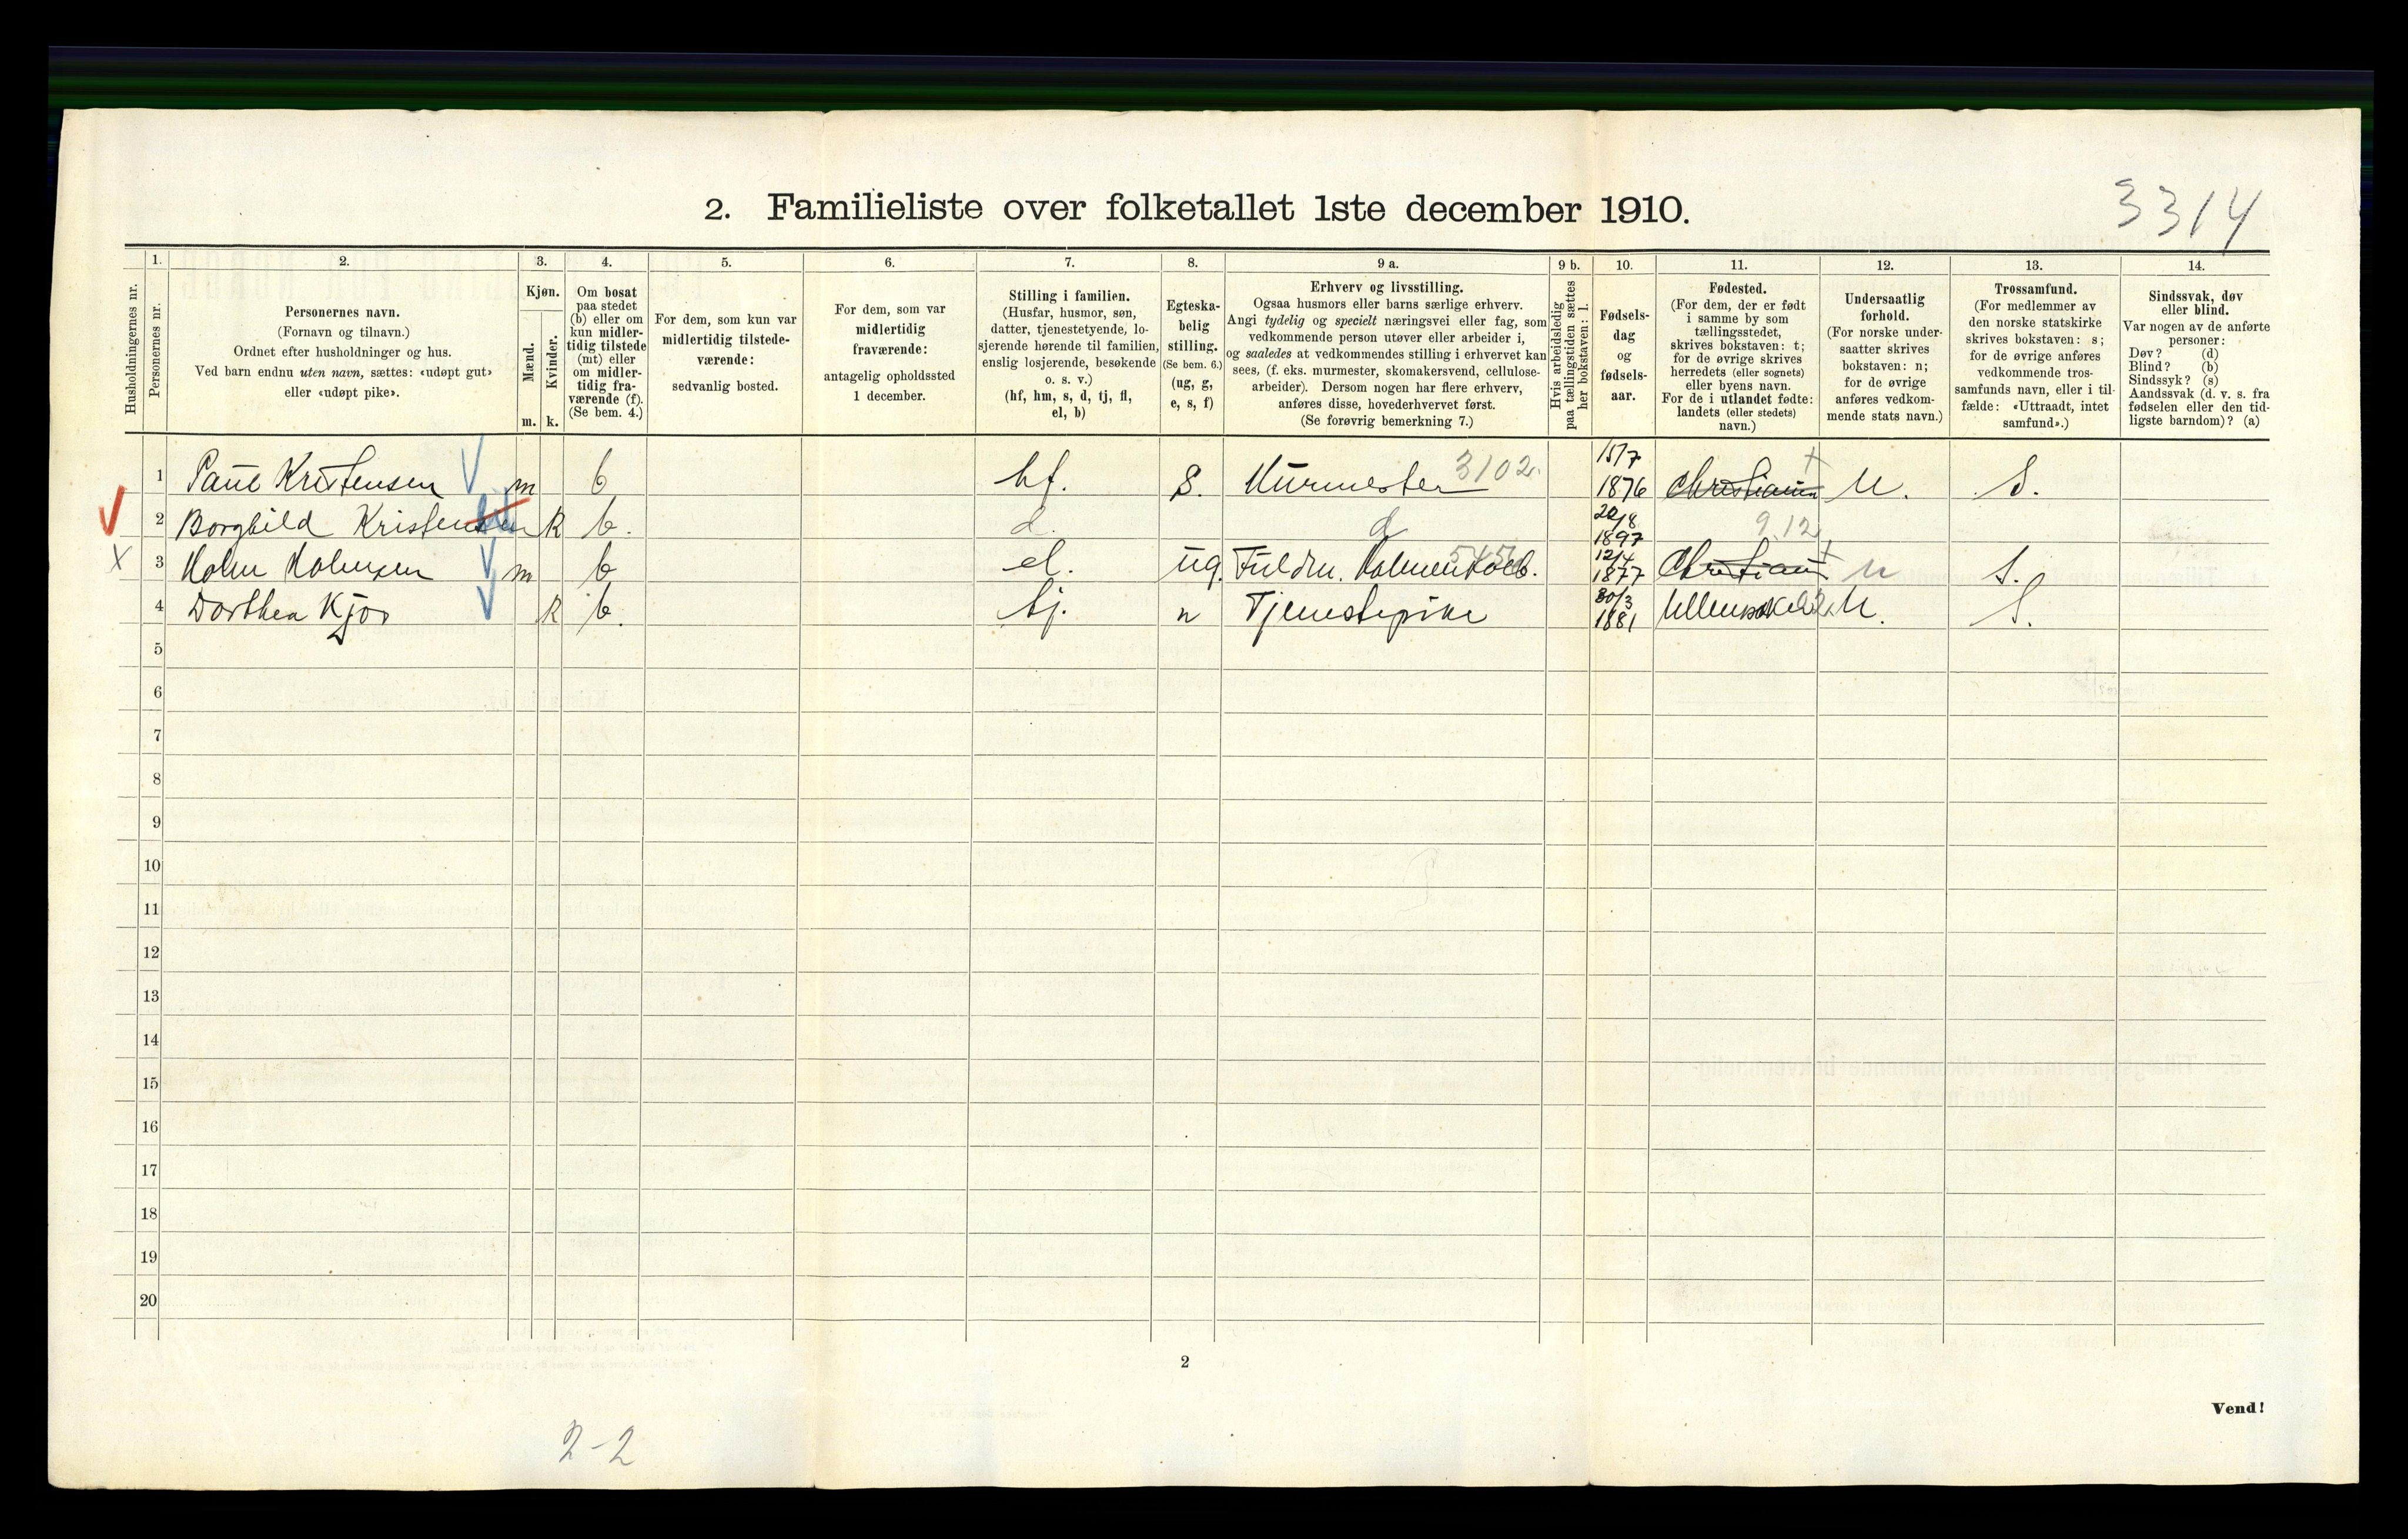 2. Familieliste over folketallet 1ste december 1910.
3314
Husholdningernes nr.
1. Personernes nr.
2. Personernes navn. (Fornavn og tilnavn.) Ordnet efter husholdninger og hus. Ved barn endnu uten navn, sættes: «udøpt gut» eller «udøpt pike».
3. Kjøn. Mænd. m. Kvinder. k.
4. Om bosat paa stedet (b) eller om kun midlertidig tilstede (mt) eller om midlertidig fraværende (f). (Se bem. 4.)
5. For dem, som kun var midlertidig tilstedeværende: sedvanlig bosted.
6. For dem, som var midlertidig fraværende: antagelig opholdssted 1 december.
7. Stilling i familien. (Husfar, husmor, søn, datter, tjenestetyende, losjerende hørende til familien, enslig losjerende, besøkende o. s. v.) (hf, hm, s, d, tj, fl, el, b)
8. Egteskabelig stilling. (Se bem. 6.) (ug, g, e, s, f)
9 a. Erhverv og livsstilling. Ogsaa husmors eller barns særlige erhverv. Angi tydelig og specielt næringsvei eller fag, som vedkommende person utøver eller arbeider i, og saaledes at vedkommendes stilling i erhvervet kan sees, (f. eks. murmester, skomakersvend, cellulosearbeider). Dersom nogen har flere erhverv, anføres disse, hovederhvervet først. (Se forøvrig bemerkning 7.)
9 b. Hvis arbeidsledig paa tællingstiden sættes her bokstaven: l.
10. Fødselsdag og fødselsaar.
11. Fødested. (For dem, der er født i samme by som tællingsstedet, skrives bokstaven: t; for de øvrige skrives herredets (eller sognets) eller byens navn. For de i utlandet fødte: landets (eller stedets) navn.)
12. Undersaatlig forhold. (For norske undersaatter skrives bokstaven: n; for de øvrige anføres vedkommende stats navn.)
13. Trossamfund. (For medlemmer av den norske statskirke skrives bokstaven: s; for de øvrige anføres vedkommende trossamfunds navn, eller i tilfælde: «Uttraadt, intet samfund».)
14. Sindssvak, døv eller blind. Var nogen av de anførte personer: Døv? (d) Blind? (b) Sindssyk? (s) Aandssvak (d. v. s. fra fødselen eller den tidligste barndom)? (a)
1 Paul Kristensen m b hf. g. Murmester 3102. 15/7 1876 Christiania n. S.
2 Borghild Kristensen k b. d. d 20/8 1897 9.12
3 Holm Holmsen m b el. ug. Fuldm. 12/4 1877 Christiania n S.
4 Dorthea Kjos k b. tj. n Tjenestepike 30/3 1881 n. S.
5
6
7
8
9
10
11
12
13
14
15
16
17
18
19
20
2
Vend!
2-2